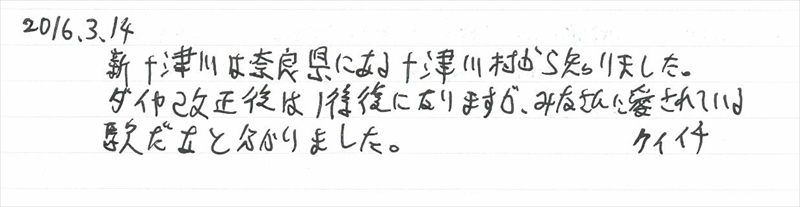 2016.3.14
新十津川は奈良県にある十津川村から知りました。
ダイヤ改正後は1往復になりますが、みなさんに愛されている
駅だなと分かりました。 ケイイチ